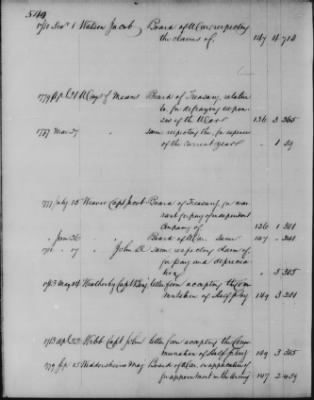 540
1781 Nov. 6 Watson Jacob Board of War respecting
the claims of. 147 4 713
1779 Ap. 21 Ways & Means Board of Treasury relative
to, for defraying expen
ses of the War 136 3 365
1777 Mar 27 same respecting the, for expences
of the current year 1 39
1777 July 15 Weaver Capt Jacob Board of Treasury, for war
rant for pay of independent
company of 136 1 301
" Jan 26 " Board of War same 147 " 301
" 17 " John A same respecting claim of
for pay and deprecia
tion 5 305
1783 May 14 Weatherby Capt Benj letter from accepting the com
mutation of half pay 149 3 201
1783 Apl 22 Webb Capt John letter from accepting the Com
mutation of half pay 149 3 365
1779 Maj Board of War, on application of
for appointment in the Army 147 2 439